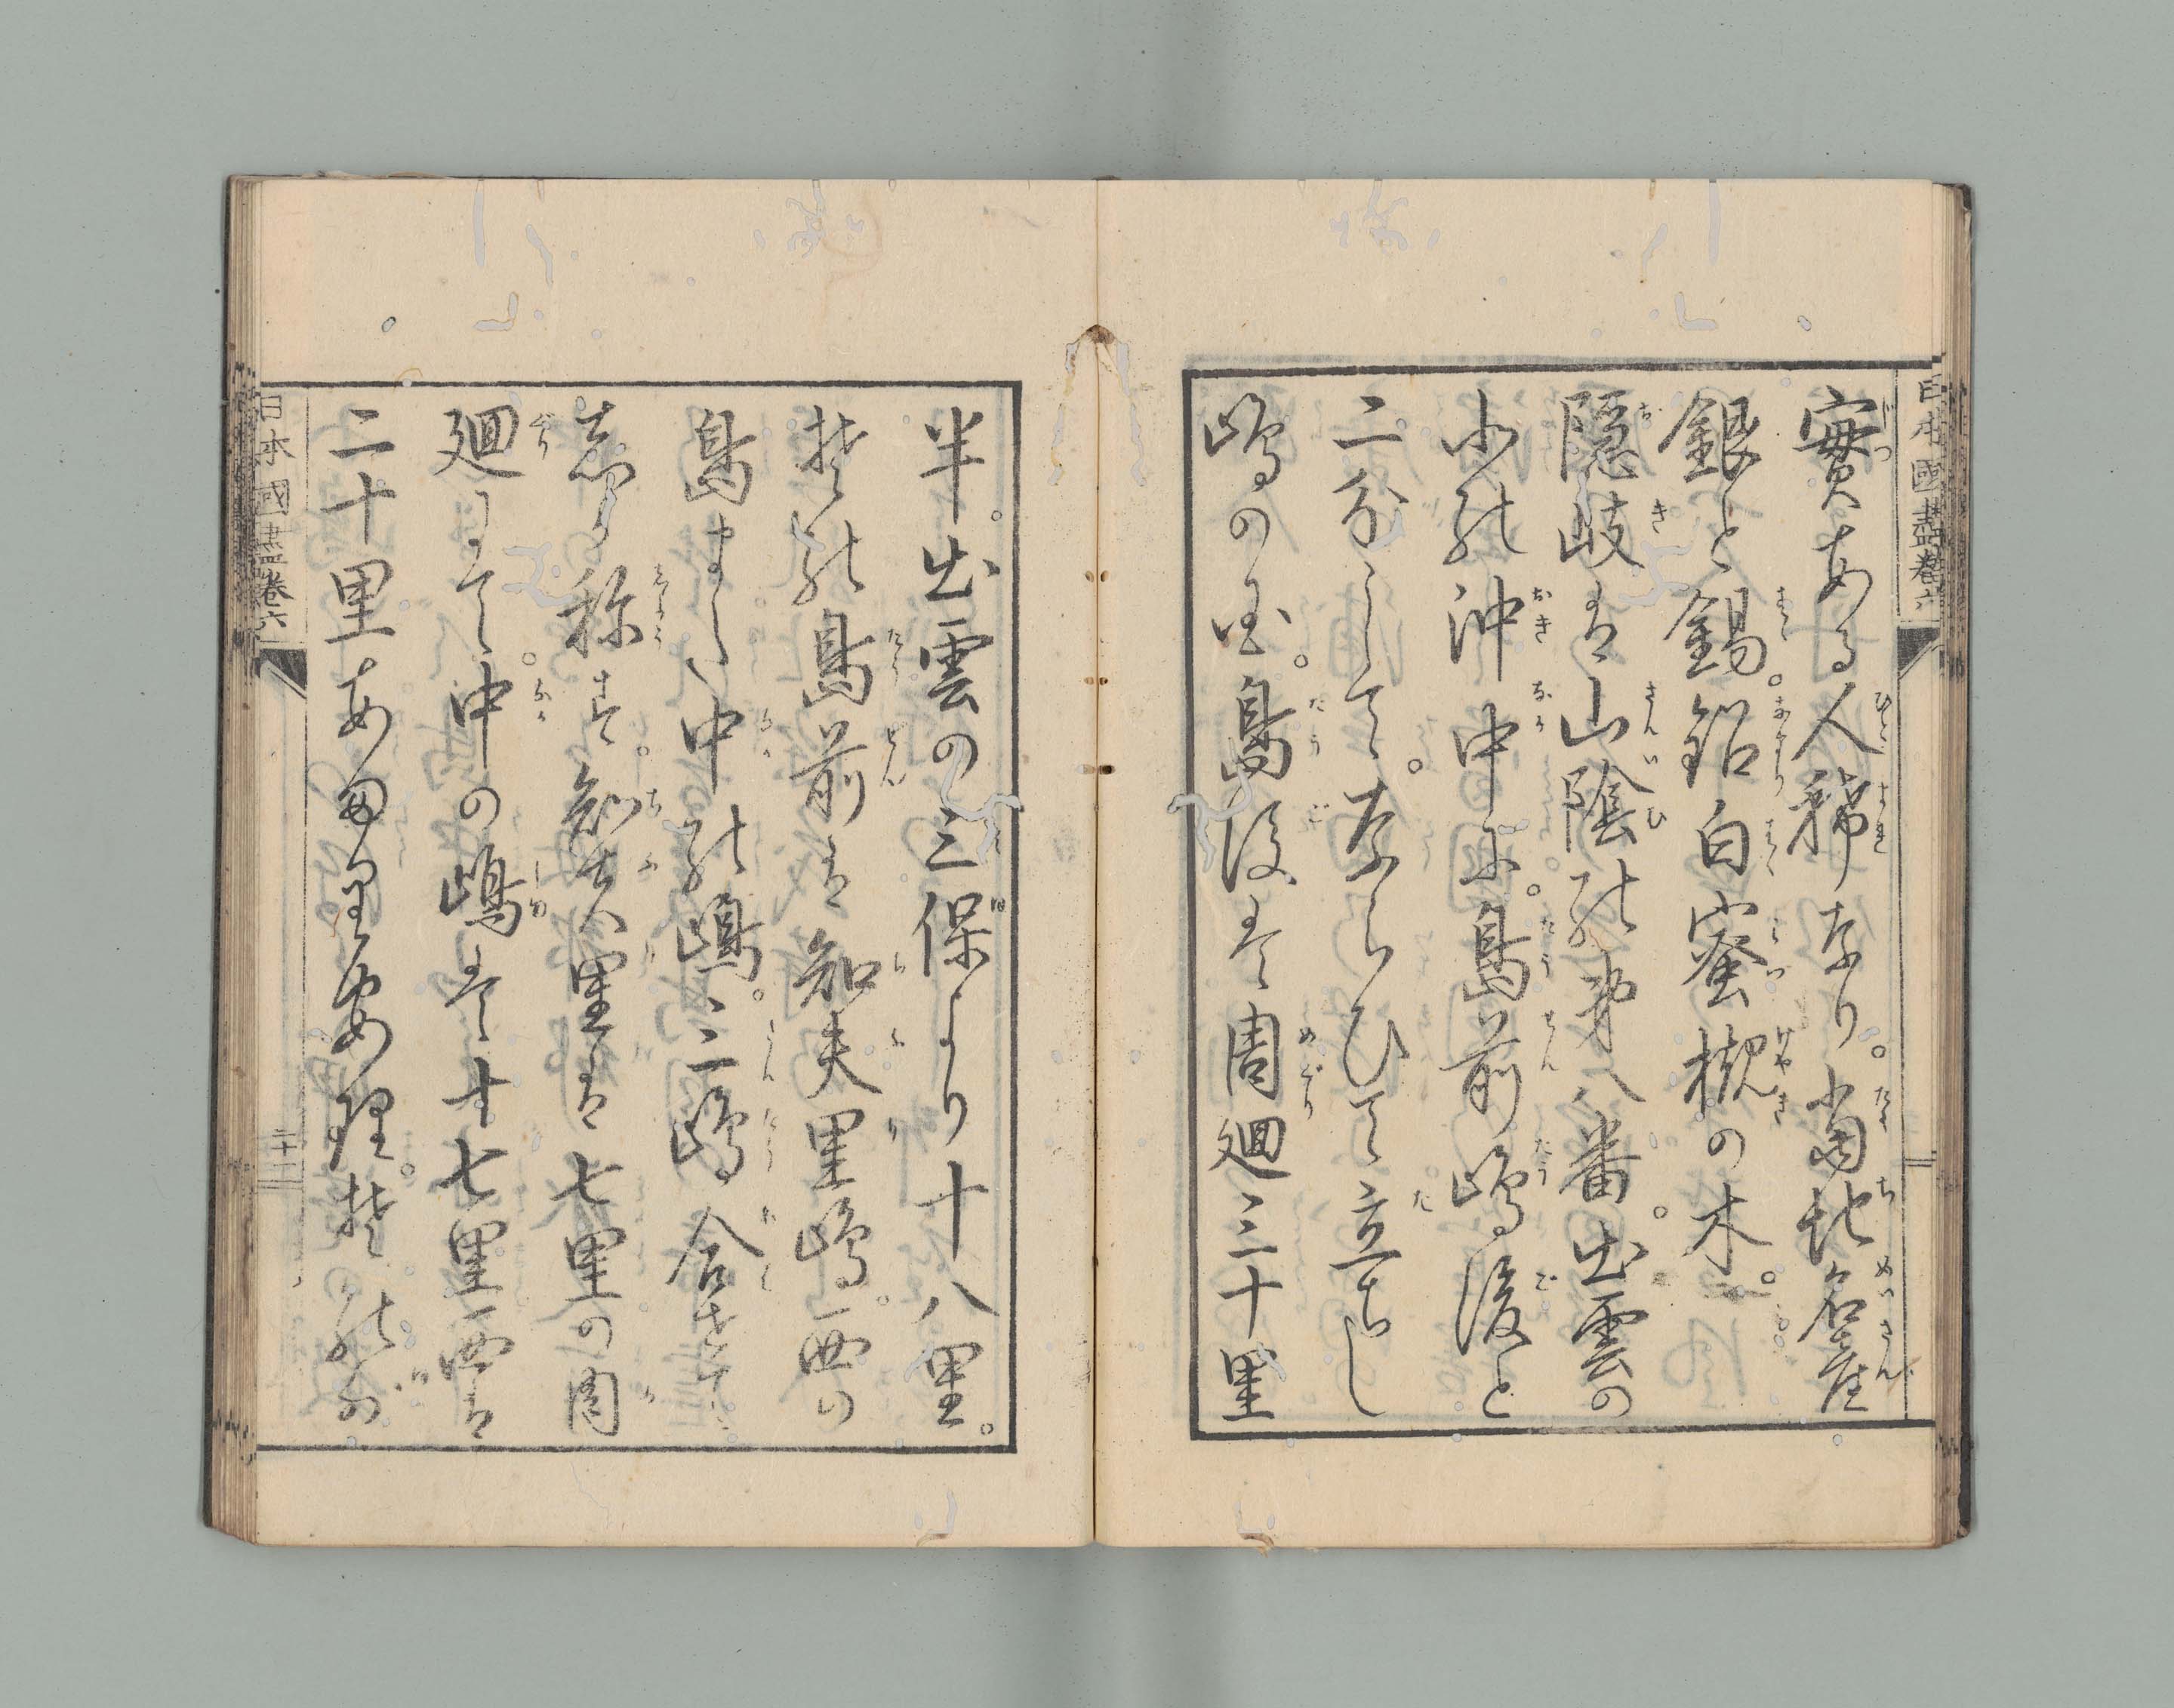 日本國盡卷六
實ある人稀なり。當地名産
銀と錫。鉛白蜜槻の木。
隠岐は山陰の第八番。出雲の
北の沖中に。島前嶋後と
二分して。ならひて立ちし
嶋の国。島後は周廻三十里
半。出雲の三保より十八里。
其の島前は知夫里嶋。西の
島また中の嶋。三嶋合せて
志か称す。知夫里は七里の周
廻にて。中の嶋は十七里西は
二十里あまりあり。其のが
日本國盡卷六
二十二